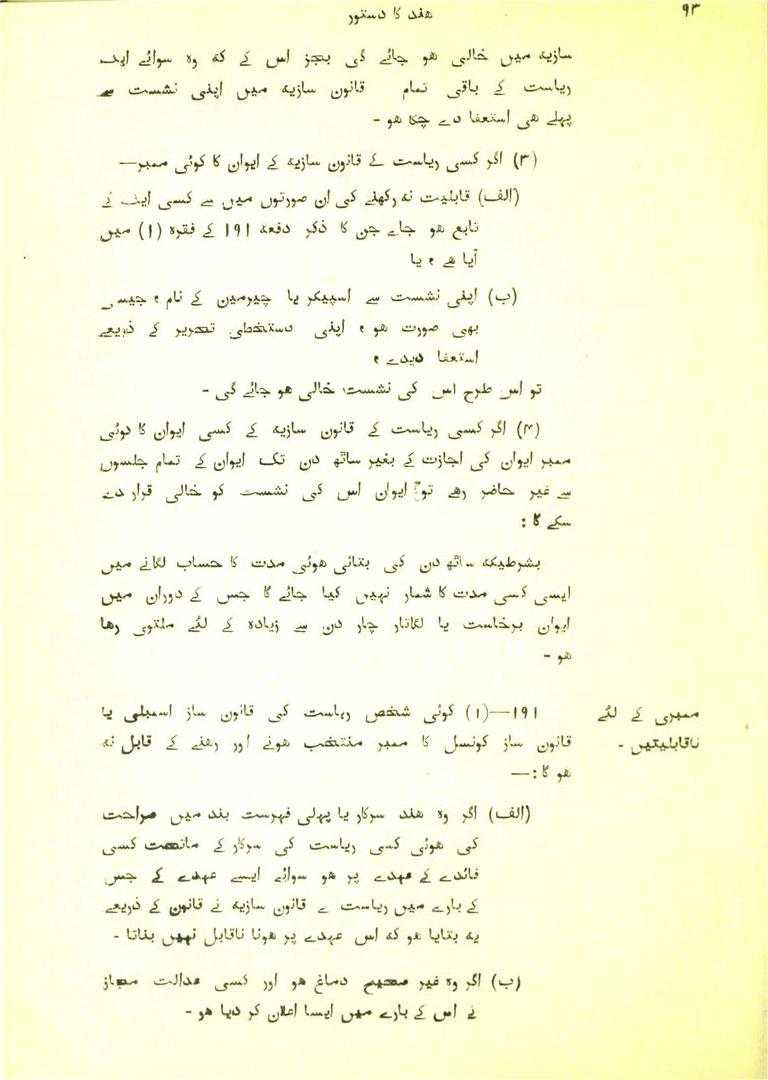 ۹۳
هند کا دستور
سازیه میں خالی هو جائے گی بجز اس کے که وه سوائے ایک
ریاست کے باقی تمام قانون سازیه میں اپنی نشست سے
پہلے هی استعفا دے چکا هو -
(۳) اگر کسی ریاست کے قانون سازیه کے ایوان کا کوئی ممبر—
(الف) قابلیت نه رکھنے کی ان صورتوں میں سے کسی ایک کے
تابع هو جاے جن کا ذکر دفعه ۱۹۱ کے فقره (۱) میں
آیا هے ، یا
(ب) اپنی نشست سے اسپیکر یا چیرمین کے نام ، جیسی
بھی صورت هو ، اپنی دستخطی تحریر کے ذریعے
استعفا دیدے ،
تو اس طرح اس کی نشست خالی هو جائے گی -
(۴) اگر کسی ریاست کے قانون سازیه کے کسی ایوان کا کوئی
ممبر ایوان کی اجازت کے بغیر ساٹھ دن تک ایوان کے تمام جلسوں
سے غیر حاضر رهے تو ایوان اس کی نشست کو خالی قرار دے
سکے گا :
بشرطیکه ساٹھ دن کی بتائی هوئی مدت کا حساب لگانے میں
ایسی کسی مدت کا شمار نہیں کیا جائے گا جس کے دوران میں
ایوان برخاست یا لگاتار چار دن سے زیاده کے لئے ملتوی رها
هو -
ممبری کے لئے
ناقابلیتیں -
۱۹۱—(۱) کوئی شخص ریاست کی قانون ساز اسمبلی یا
قانون ساز کونسل کا ممبر منتخب هونے اور رهنے کے قابل نه
هو گا :—
(الف) اگر وه هند سرکار یا پہلی فہرست بند میں صراحت
کی هوئی کسی ریاست کی سرکار کے ماتحت کسی
فائدے کے عہدے پر هو سوائے ایسے عہدے کے جس
کے بارے میں ریاست کے قانون سازیه نے قانون کے ذریعے
یه بتایا هو که اس عہدے پر هونا ناقابل نہیں بناتا -
(ب) اگر وه غیر صحیح دماغ هو اور کسی عدالت مجاز
نے اس کے بارے میں ایسا اعلان کر دیا هو -